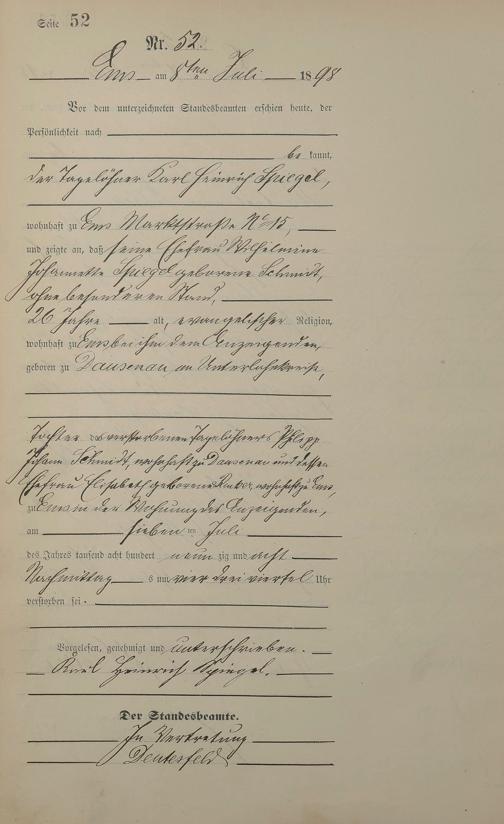 Seite 52
Nr. 52.
Ems am 8ten Juli 1898
Vor dem unterzeichneten Standesbeamten erschien heute, der
Persönlichkeit nach
be kannt,
der Tagelöhner Karl Heinrich Spiegel,
wohnhaft zu Ems Marktstraße No 15,
und zeigte an, daß seine Ehefrau Wilhelmine
Johannette Spiegel geborene Schmidt,
ohne besonderen Stand,
26 Jahre alt, evangelischer Religion,
wohnhaft zu Ems bei ihm dem Anzeigenden,
geboren zu Dausenau, im Unterlahnkreise,
Tochter des verstorbenen Tagelöhners Philipp
Johann Schmidt, wohnhaft zu Dausenau und dessen
Ehefrau Elisabeth geborene wohnhaft zu Ems,
zu Ems in der Wohnung des Anzeigenden,
am sieben ten Juli
des Jahres tausend acht hundert neun zig und acht
Nachmittag s um vier drei viertel Uhr
verstorben sei.
Vorgelesen, genehmigt und unterschrieben.
Karl Heinrich Spiegel.
Der Standesbeamte.
In Vertretung